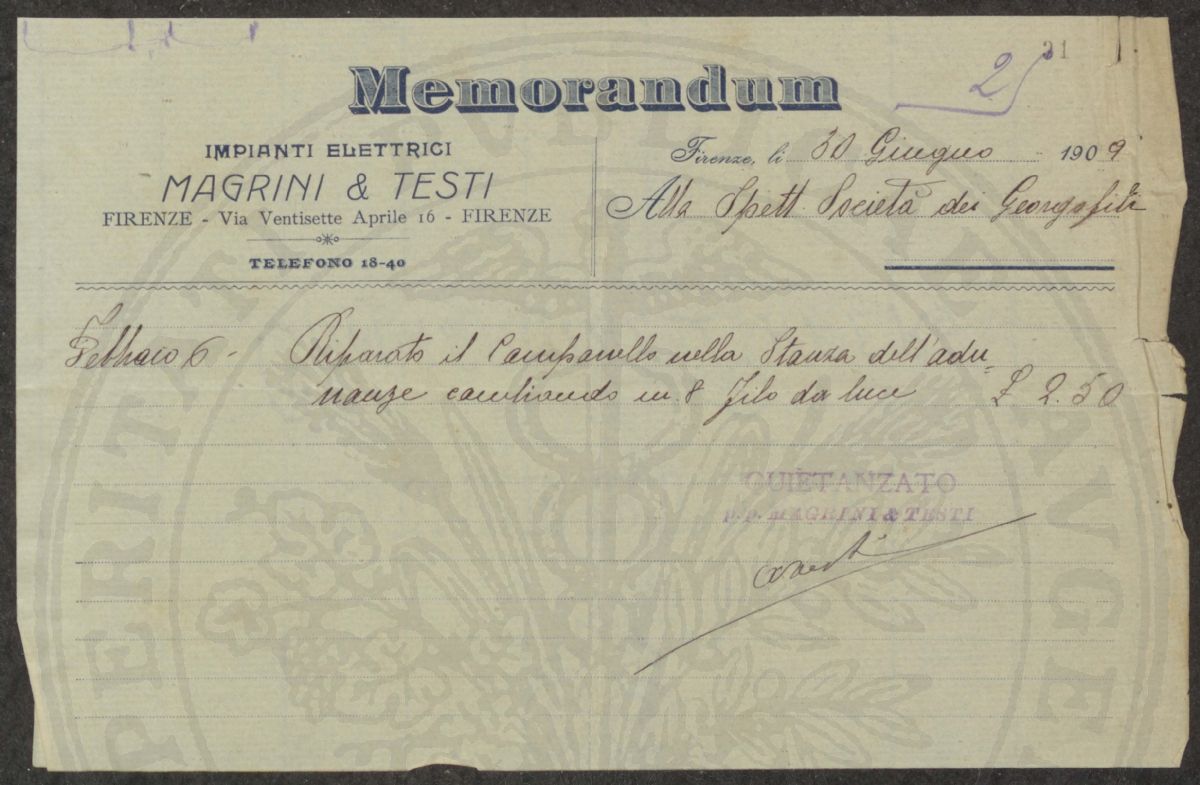 21
2
Memorandum
IMPIANTI ELETTRICI
MAGRINI & TESTI
FIRENZE - Via Ventisette Aprile 16 - FIRENZE
TELEFONO 18-40
Firenze, li 30 Giugno 1909
Alla Spett. Società dei Georgofili
Febbraio 6 - Riparato il Campanello nella Stanza dell'adu
nanze cambiando m. 8 filo da luce £ 2.50
QUIETANZATO
p.p. MAGRINI & TESTI